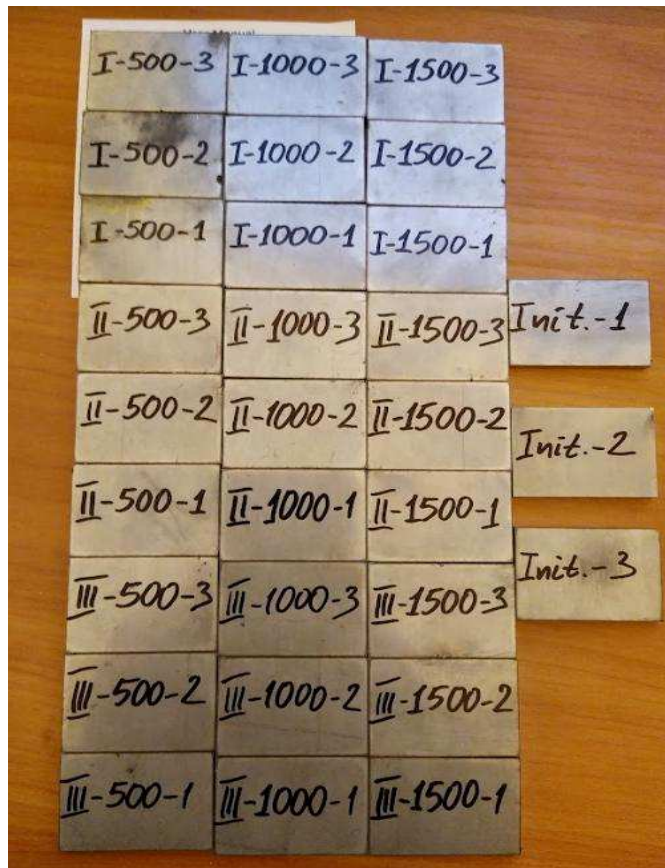 User Manual
I-500-3 I-1000-3 I-1500-3
I-500-2 I-1000-2 I-1500-2
I-500-1 I-1000-1 I-1500-1
II-500-3 II-1000-3 II-1500-3 Init.-1
II-500-2 II-1000-2 II-1500-2 Init.-2
II-500-1 II-1000-1 II-1500-1
III-500-3 III-1000-3 III-1500-3 Init.-3
III-500-2 III-1000-2 III-1500-2
III-500-1 III-1000-1 III-1500-1